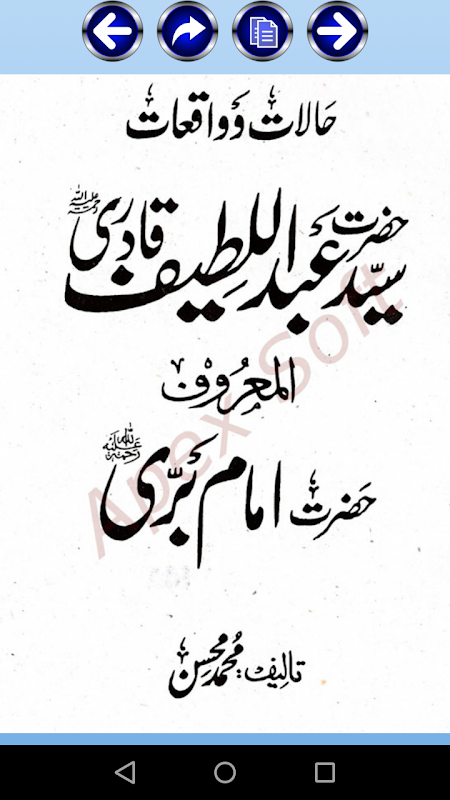 حالات و واقعات
حضرت
سیّد عبداللطیف قادری رحمۃ اللہ علیہ
المعروف
حضرت امام برّی رحمۃ اللہ علیہ
تالیف: محمد محسن
Apex Soft